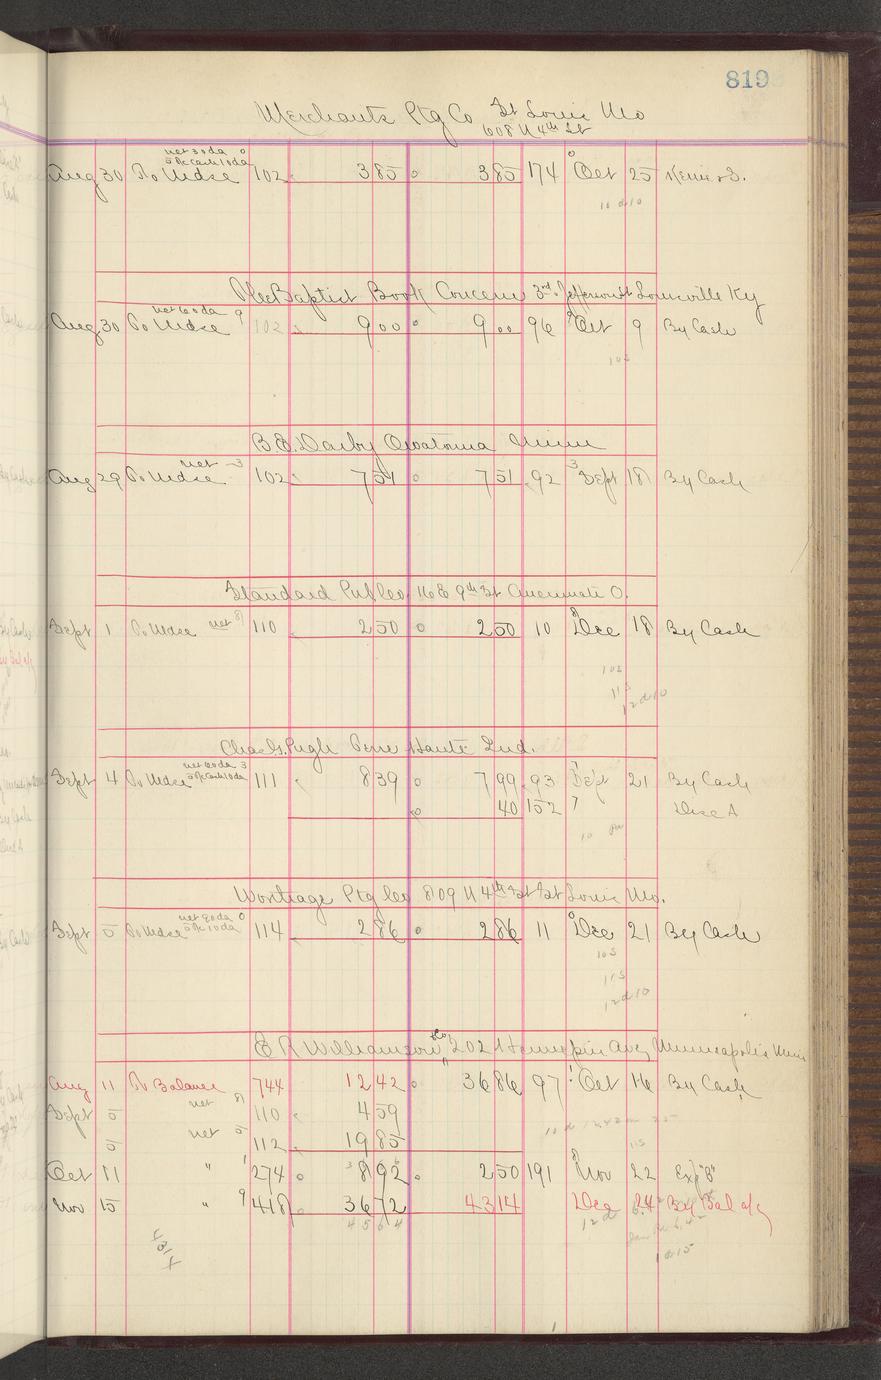 819
Merchants Ptg Co St Louis Mo
608 N 4th St
net 30 da 0
5% Cash 10 da
Aug 30 To Mdse 102 3 85 3 85 174 0 Oct 25
10 d 10
Baptist Book Concern 3rd & Jefferson St Louisville Ky
net 60 da 9
Aug 30 To Mdse 102 9 00 9 00 96 9 Oct 9 By Cash
10 S
B.E. Darby Owatonna Minn
net 3
Aug 29 To Mdse 102 7 51 7 51 92 3 Sept 18 By Cash
Standard Pub Co. 16 E 9th St Cincinnati O.
Sept 1 To Mdse net 8 110 2 50 2 50 10 8 Dec 18 By Cash
10 S
11 S
12 d 10
Chas. G. Pugh Terre Haute Ind.
net 60 da 3
5% Cash 10 da
Sept 4 To Mdse 111 8 39 7 99 93 7 Sept 21 By Cash
40 152 7 Disc A
10
Ptg Co 809 N 4th St St Louis Mo.
net 90 da 0
5% 10 da
Sept 5 To Mdse 114 2 86 2 86 11 0 Dec 21 By Cash
10 S
11 S
12 d 10
E R Williamson & Co, 202 Hennepin Ave, Minneapolis Minn
Aug 11 To Balance 744 12 42 36 86 97 1 Oct 16 By Cash
Sept 5 net 8 110 4 59
5 net 5 112 19 85
11 S
Oct 11 " 1 274 8 92 2 50 191 8 Nov 22 Exp "B"
Nov 15 " 9 418 36 72 43 14 Dec 24 By Bal a/c
45 64
12 d
43 14
1 d 15